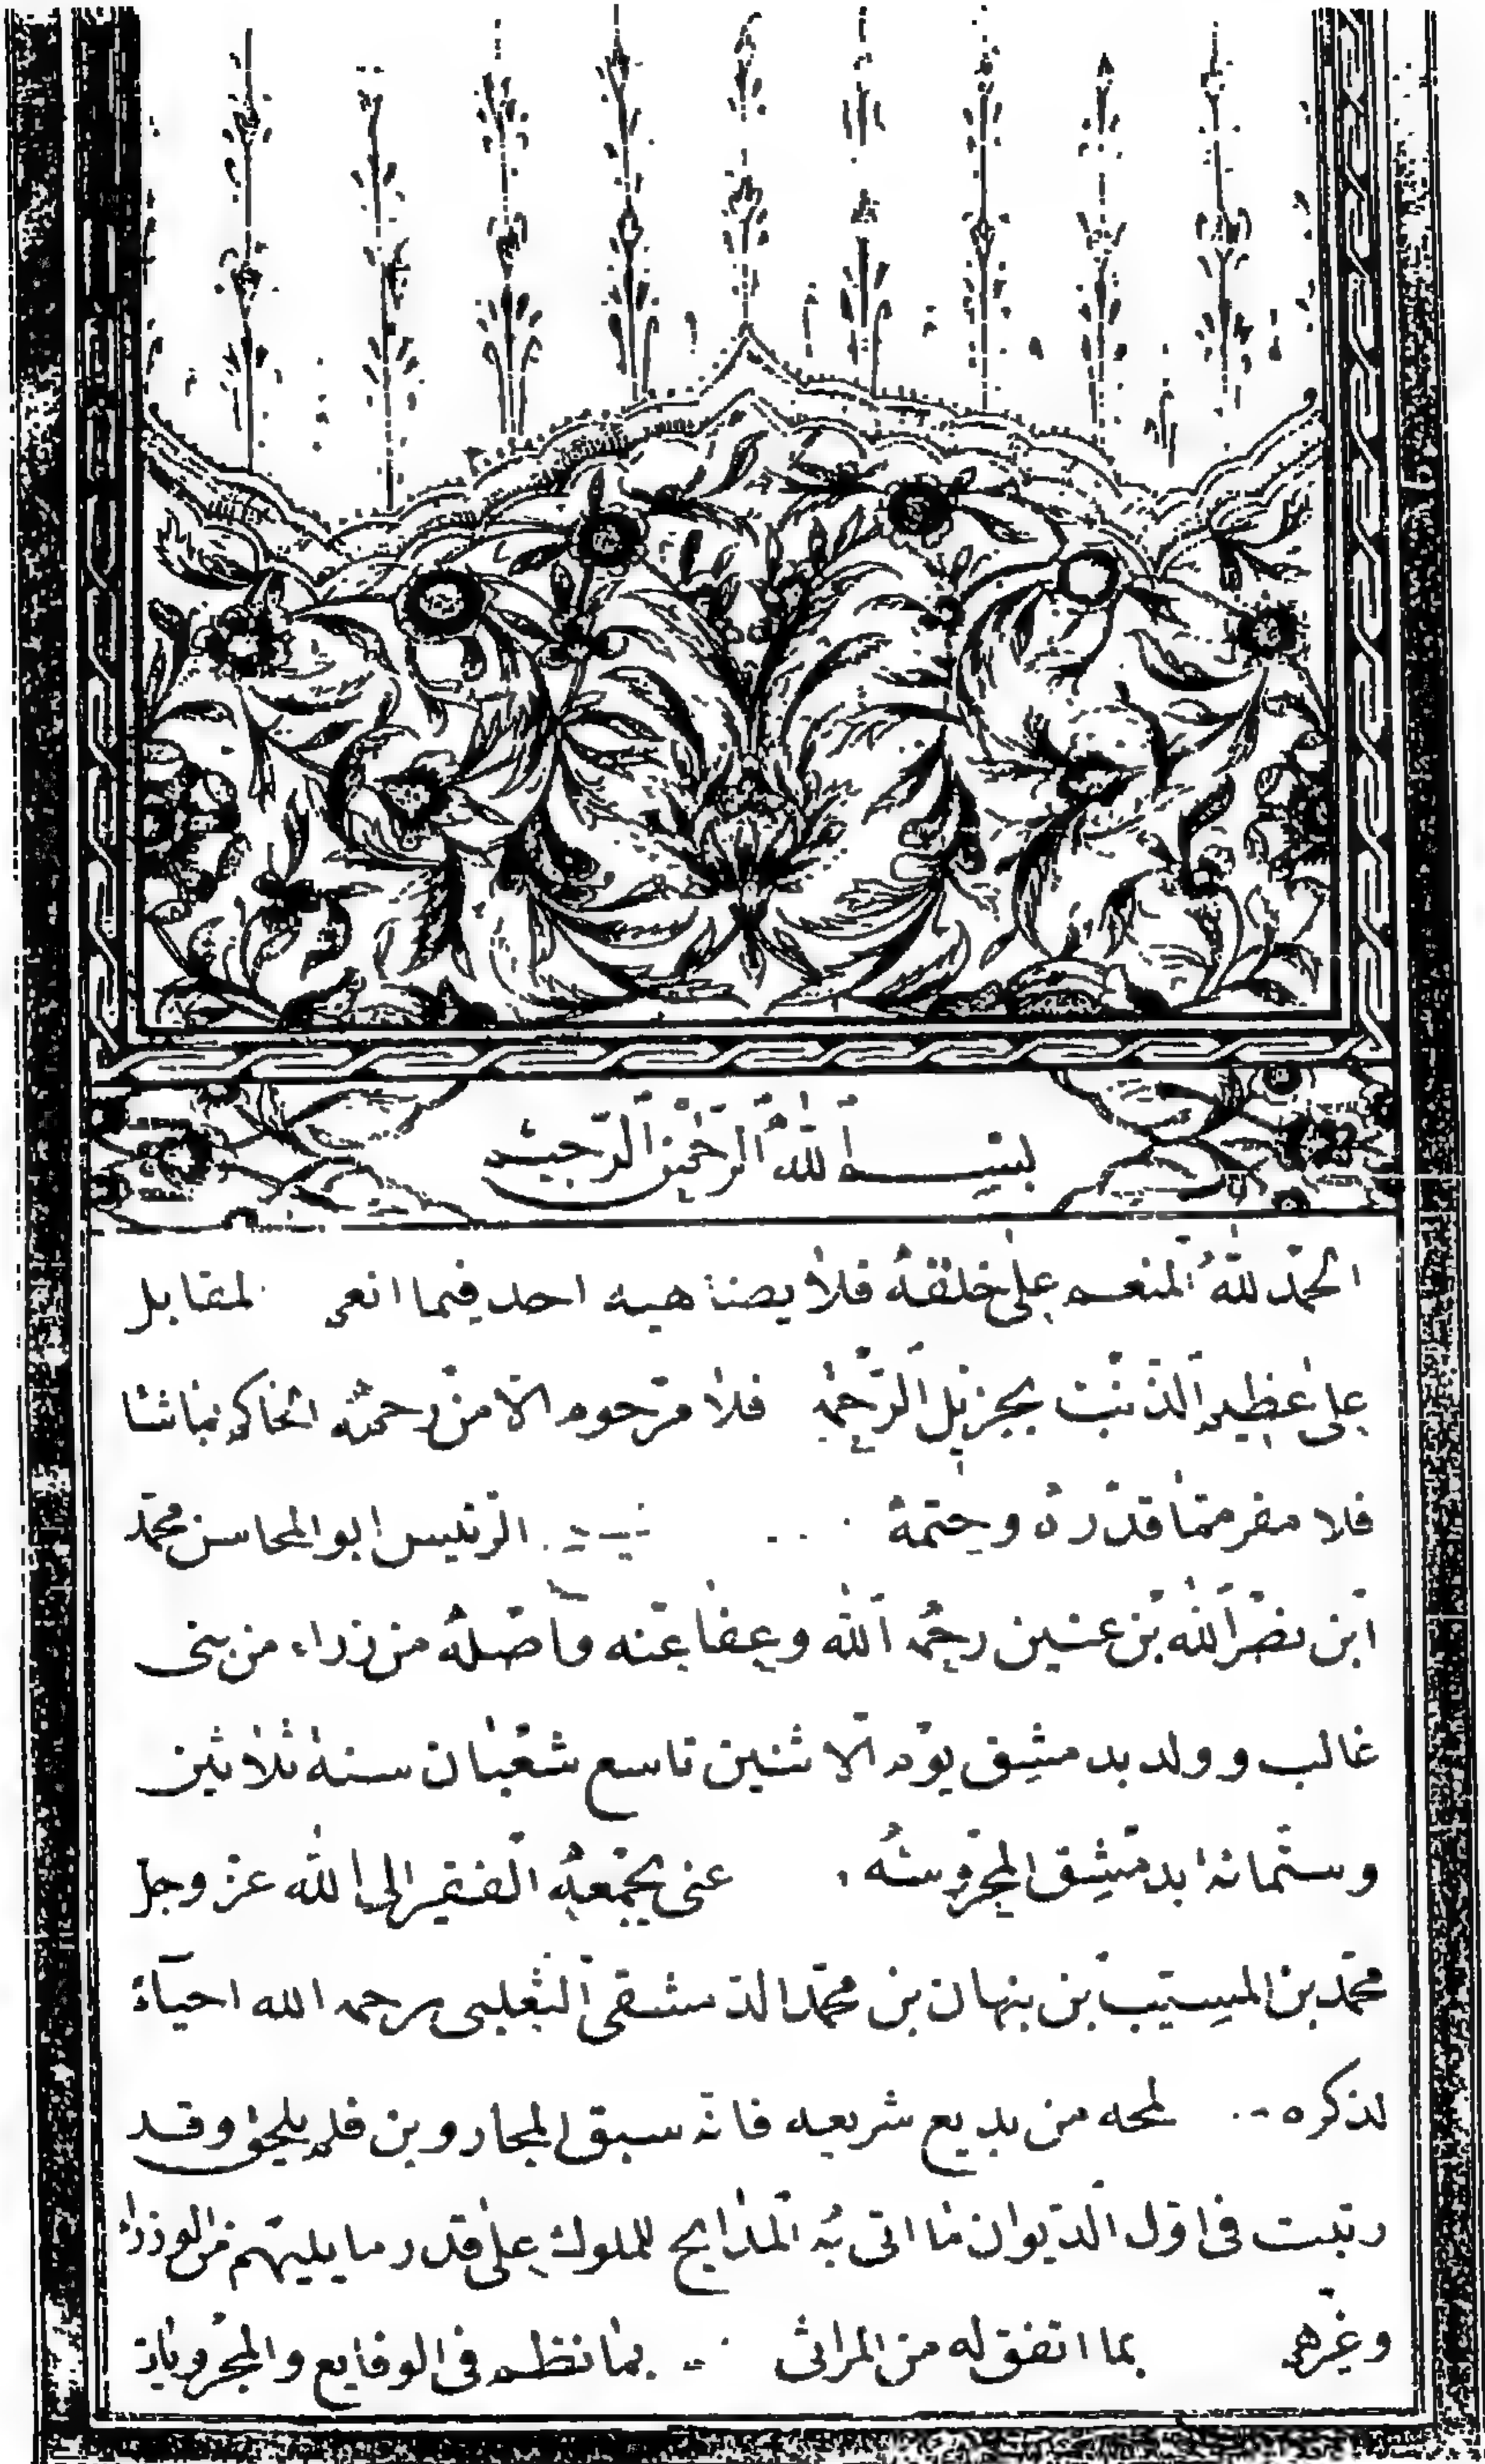 بسم الله الرحمن الرحيم
الحمد لله المنعم على خلقه فلا يضاهيه احد فيما انعم المقابل
على عظيم الذنب بجزيل الرحمة فلا مرحوم الا من رحمته الحاكم بماشا
فلا مفر مما قدره وحتمه الرئيس ابو المحاسن محمد
ابن نصر الله بن عنين رحمه الله وعفا عنه واصله من زراء من بنى
غالب وولد بدمشق يوم الاثنين تاسع شعبان سنة ثلاثين
وستمائة بدمشق المحروسه عنى بجمعه الفقير الى الله عز وجل
محمد بن المسيب بن نبهان بن محمد الدمشقى الثعلبى رحمه الله احياء
لذكره لمحه من بديع شريعه فانه سبق المجاروين فلم يلحق وقد
رتبت فى اول الديوان ما اتى به المدايح للملوك على قدر ما يليهم من الوزراء
وغيرهم بما اتفق له من المراثى بما نظم فى الوقايع والمجرويات